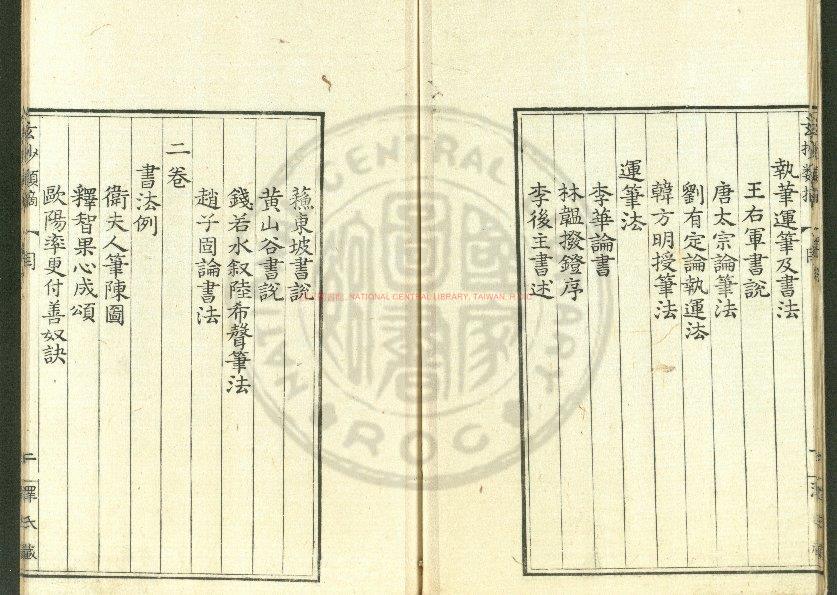 執筆運筆及書法
王右軍書說
唐太宗論筆法
劉有定論執運法
韓方明授筆法
運筆法
李華論書
林韞撥鐙序
李後主書述
蘇東坡書說
黃山谷書說
錢若水叙陸希聲筆法
趙子固論書法
二卷
書法例
衛夫人筆陳圖
釋智果心成頌
歐陽率更付善奴訣
NATIONAL CENTRAL LIBRARY, TAIWAN, R